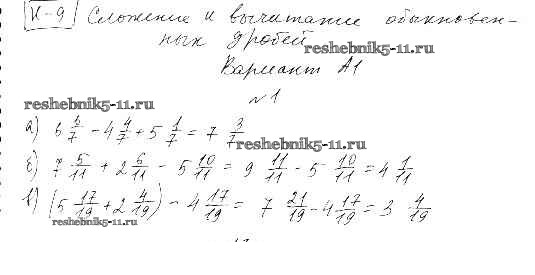 К-9 Сложение и вычитание обыкновен-
ных дробей
reshebnik5-11.ru
Вариант А1
reshebnik5-11.ru
№1
а) 6 6/7 - 4 4/7 + 5 1/7 = 7 3/7
reshebnik5-11.ru
б) 7 5/11 + 2 6/11 - 5 10/11 = 9 11/11 - 5 10/11 = 4 1/11
в) (5 17/19 + 2 4/19) - 4 17/19 = 7 21/19 - 4 17/19 = 3 4/19
reshebnik5-11.ru